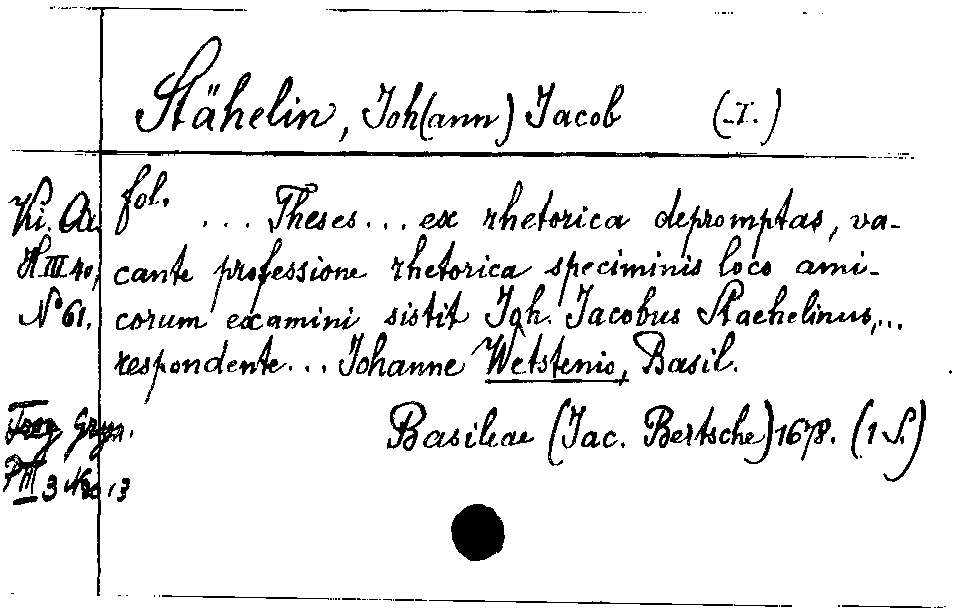 Stähelin, Joh(ann) Jacob (I.)
fol.
Ki. Ar.
H III 40,
No 61.
... Theses... ex rhetorica depromptas, va-
cante professione rhetorica speciminis loco ami-
corum examini sistit Joh. Jacobus Staehelinus,...
respondente... Johanne Wetstenio, Basil.
Frey Gryn.
Basileae (Jac. Bertsche) 1678. (1 S.)
P III 3 No 13